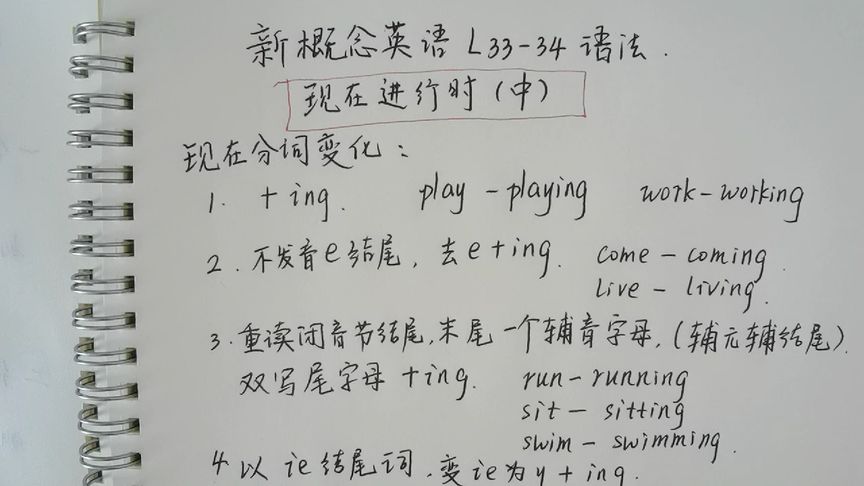 新概念英语 L33-34 语法.
现在进行时（中）
现在分词变化：
1. + ing. play - playing work - working
2. 不发音e结尾, 去e+ing. come - coming.
live - living.
3. 重读闭音节结尾,末尾一个辅音字母,(辅元辅结尾).
双写尾字母 +ing. run - running
sit - sitting
swim - swimming.
4. 以 ie 结尾词,变ie为y + ing.